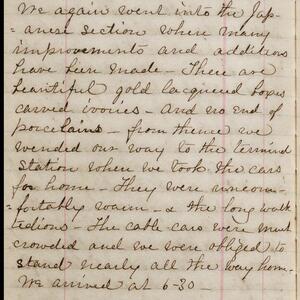 We again went into the Jap-
=anese section where many
improvements and additions
have been made - There are
beautiful gold lacquered boxes
carved ivories and no end of
porcelains - from thence we
wended our way to the terminal
station where we took the cars
for home - They were uncom-
=fortably warm - & the long walk
tedious - The cable cars were most
crowded and we were obliged to
stand nearly all the way home -
We arrived at 6-30 -